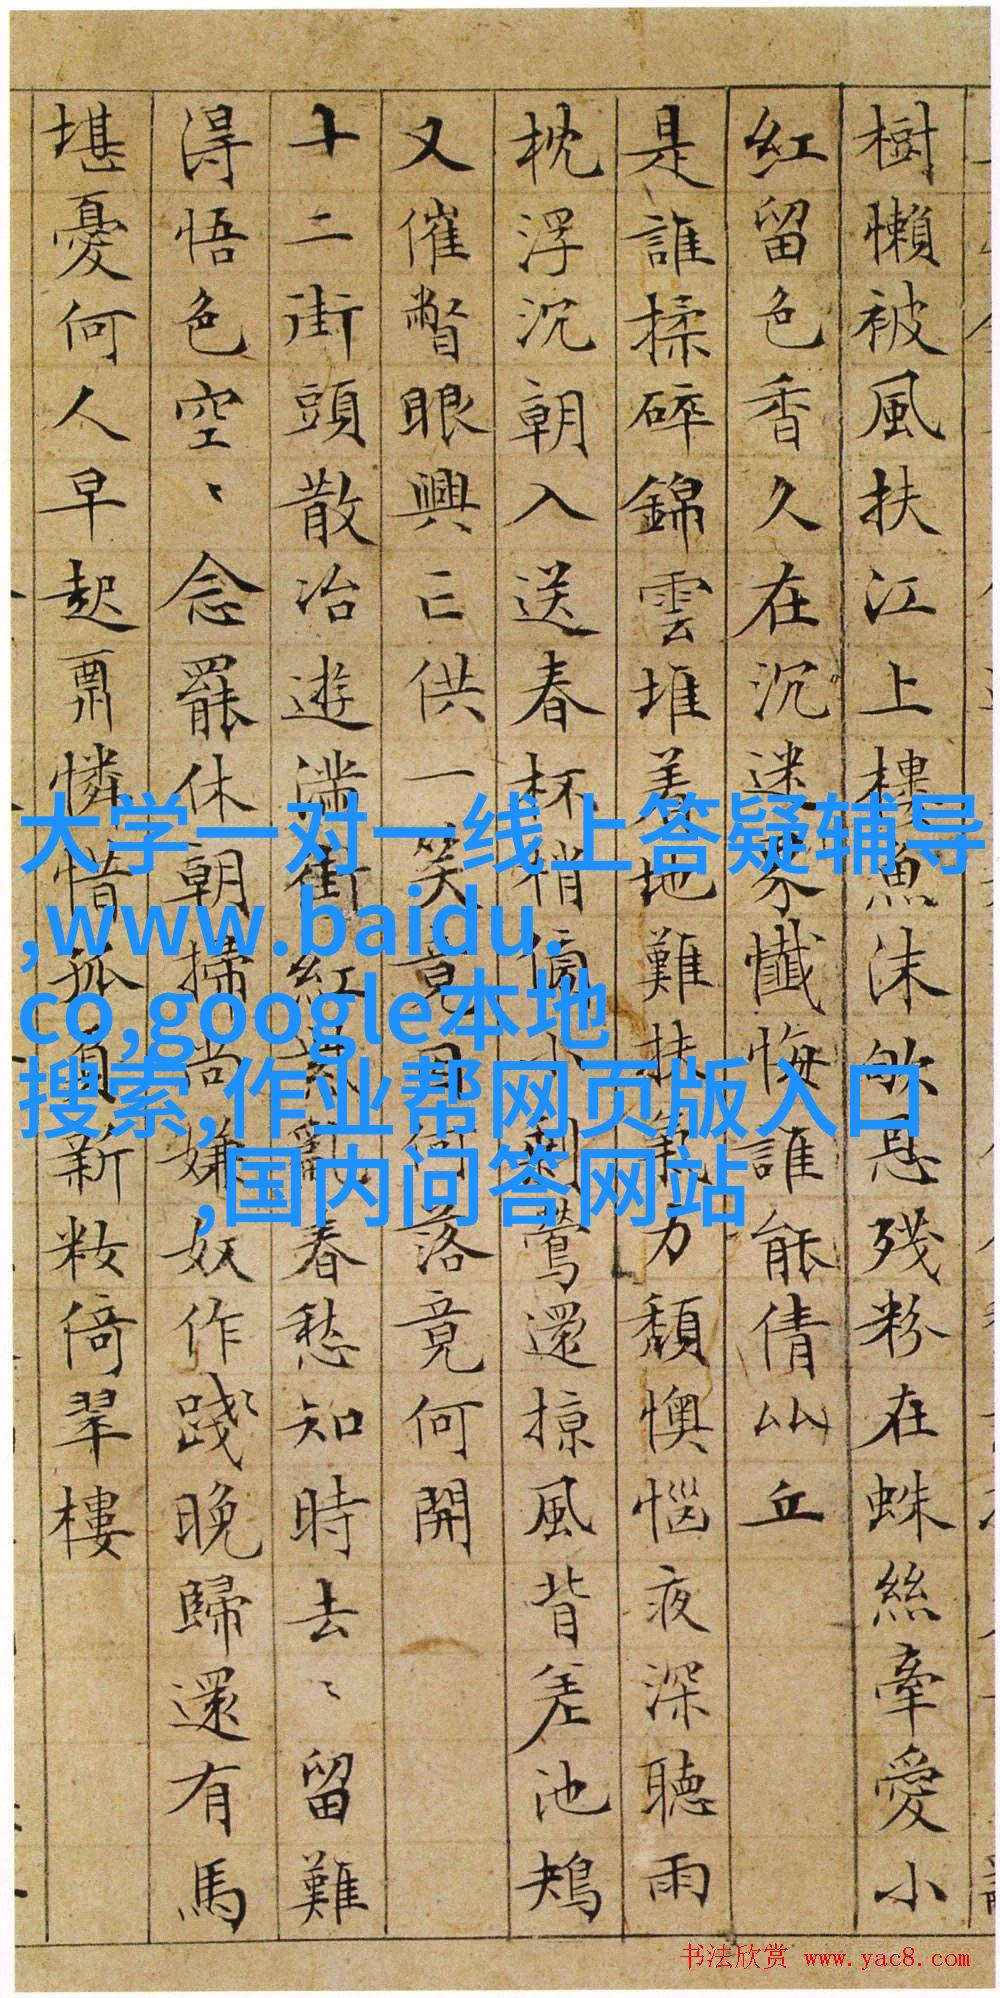 樹懶被風扶江上樓魚沫欲恩殘粉在蛛絲牽愛小
紅留色香久在沉迷界懺悔誰能倩比丘
是誰揉碎錦雲堆着地難扶氣力頹懊惱夜深聽雨
枕浮沉朝入送春杯梢傍小剩鶯還掠風背差池鴂
又催瞥眼興亡供一笑竟因何落竟何開
十二街頭散冶遊滿街紅紫亂春愁知時去〻留難
得悟色空〻念罷休朝掃尚嫌奴作踐晚歸還有馬
堪憂何人早起憐惜孤負新妝倚翠樓
大学一对一线上答疑辅导
,www.baidu.
co,google本地
搜索,作业帮网页版入口
,国内问答网站
书法欣赏 www.yac8.com